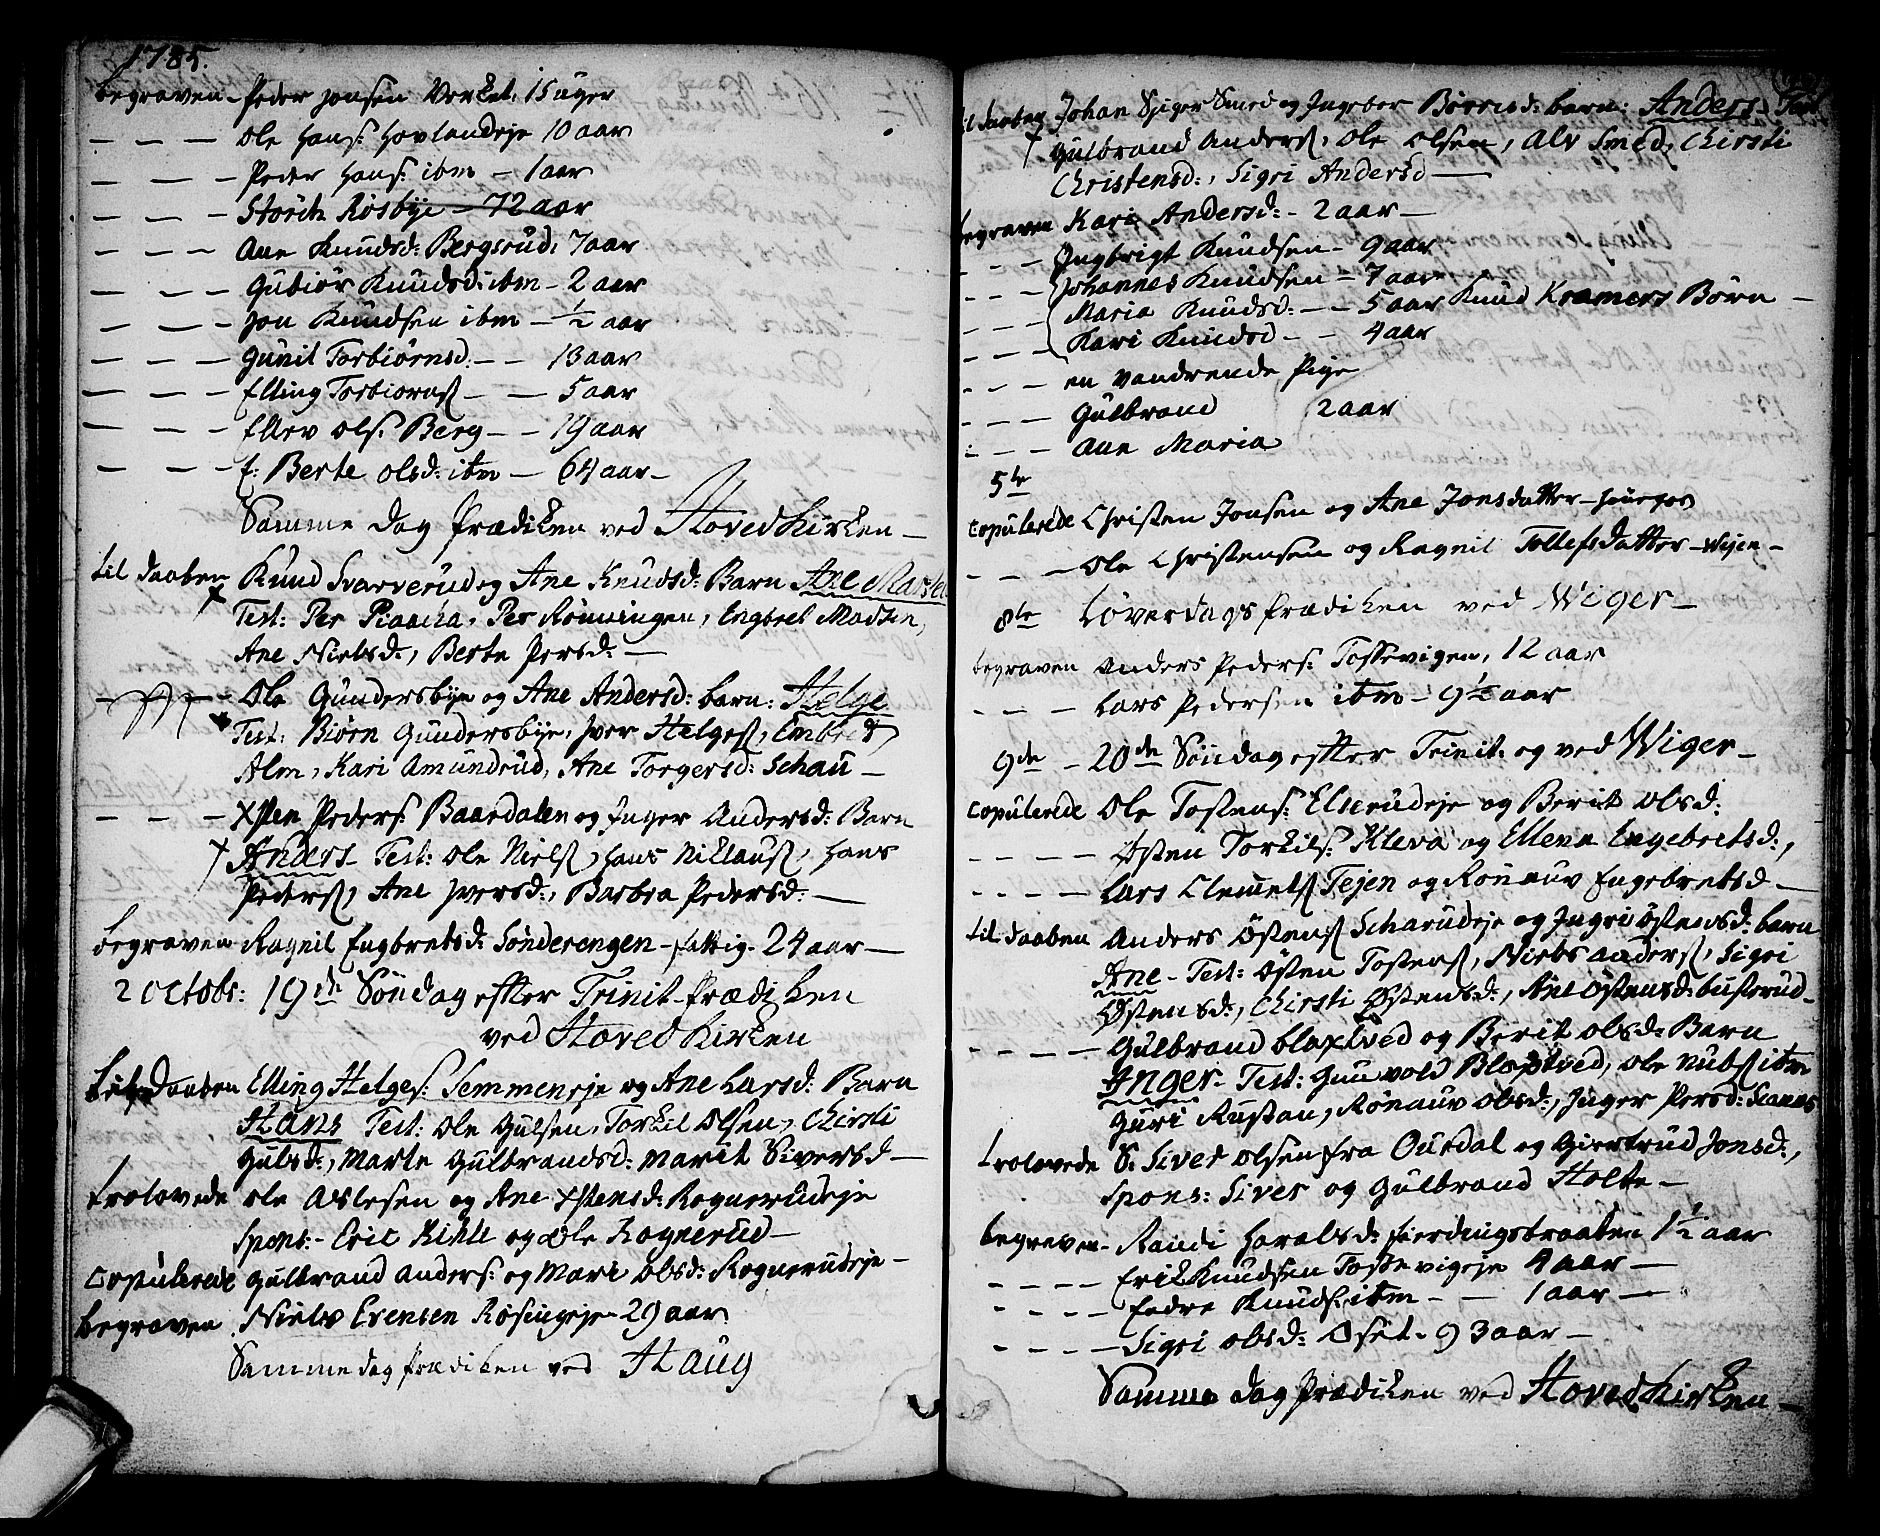 1785.
begraven - Peder Jonsen Verket, 15 uger
— — — Ole Hans: Hovlandeje 10 aar
— — — Peder Hans: ibm — 1 aar
— — — Störch Røsbÿe — 72 aar
— — — Ane Knudsd: Bergsrud, 7 aar
— — — Gubiör Knudsd: ibm — 2 aar
— — — Jon Knudsen ibm — ½ aar
— — — Gunil Torbiörnsd: — — 13 aar
— — — Elling Torbiörns — — 5 aar
— — — Ellev Ols: Berg — — 19 aar
— — — f: Berte Olsd: ibm — 64 aar —
Samme Dag Prædiken ved Hovedkirken —
til daaben Knud Svarverud og Ane Knudsd: Barn Ane Marte
Test: Per Piaaka, Per Rønningen, Engbret Madsen,
Ane Nielsd:, Berte Persd: —
— Ole Gundersbye og Ane Andersd: barn: Helge
Test: Biørn Gundersbye, Iver Helges, Embret
Alm, Kari Amundrud, Ane Torgersd: Schau —
— — — Xsten Peders: Baardalen og Inger Andersd: Barn
Anders — Test: Ole Niels, Hans Niklaus, Hans
Peders, Ane Iversd:, Barbra Pedersd: —
begraven Ragnil Engbretsd: Sønderengen — fattig — 24 aar —
2 Octobr: 19de Söndag efter Trinit. Prædiken
ved Hovedkirken
til Daaben Elling Helges: Semmenseje og Ane Larsd: Barn
Hans Test: Ole Gulsen, Torkil Olsen, Chirsti
Gulsd:, Marte Gulbrandsd: Marit Siversd —
trolovede Ole Aslesen og Ane Xstensd: Rognerudeje
Spons: — Eric Kihle og Ole Rognerud —
Copulerede Gulbrand Anders: og Mari Olsd: Rognerudeje —
begraven Niels Evensen Røsingeje — 29 aar
Samme dag Prædiken ved Haug
til daaben Johan Spiger Smed og Ingebor Børresd: barn: Anders Test
Gulbrand Anders, Ole Olsen, Alv Smed, Chirsti
Christensd:, Sigri Andersd —
begraven Kari Andersd: — 2 aar —
— — — Ingbrigt Knudsen — 9 aar
— — — Johannes Knudsen — 7 aar
— — — Maria Knudsd: — — 5 aar Knud Kramers Børn —
— — — Kari Knudsd — — 4 aar
— — — en vandrende Pige
— — — Gulbrand 2 aar
— — — Ane Maria
5te
Copulerede Christen Jonsen og Ane Jonsdatter —
— — — Ole Christensen og Ragnil Tollefsdatter — Wijen —
8te Löverdags Prædiken ved Wiger —
begraven Anders Peders: Tostevigen, 12 aar
— — — Lars Pedersen ibm — 9½ aar
9de — 20de Söndag efter Trinit: og ved Wiger —
Copulerede Ole Tostens: Elserudeje og Berit Olsd:
— — — — Østen Torkils: Kleva og Ellena Engebretsd:,
— — — — Lars Clemets Tejen og Rönauv Engebretsd —
til daaben Anders Østens Scharudeje og Ingri Østensd: barn
Ane — Test: Østen Tostens, Niels Anders, Sigri
Østensd:, Chirsti Østensd:, Ane Østensd: busterud —
— — — — Gulbrand blaxtved og Berit Olsd: Barn
Anger — Test: Gunvold Blaxtved, Ole Nubs ibm
Guri Rustan, Rønauv Olsd:, Inger Persd: Scanns
trolovede S: Siver Olsen fra Ourdal og Giertrud Jonsd:,
Spons: Siver og Gulbrand Holte —
begraven — Randi Haralsd: fierdingsbraaten 1½ aar
— — — — Erik Knudsen Tostevigeje 4 aar —
— — — — Endre Knuds: ibm — — 1 aar —
— — — — Sigri Olsd: Oset — 93 aar —
Samme Dag Prædiken ved Hovedkirken —